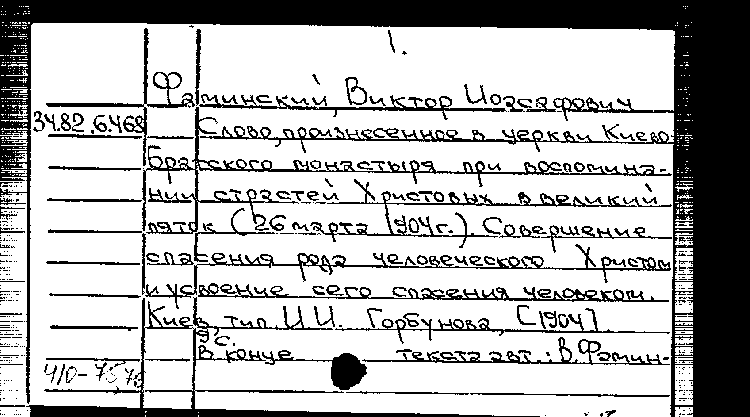 1.
Фаминский, Виктор Иоасафович
34.82.6.468
Слово, произнесенное в церкви Киево-
Братского монастыря при воспомина-
нии страстей Христовых в великий
пяток (26 марта 1904г.). Совершение
спасения рода человеческого Христом
и усвоение сего спасения человеком.
Киев, тип. И.И. Горбунова, [1904].
9 с.
В конце текста авт.: В. Фамин-